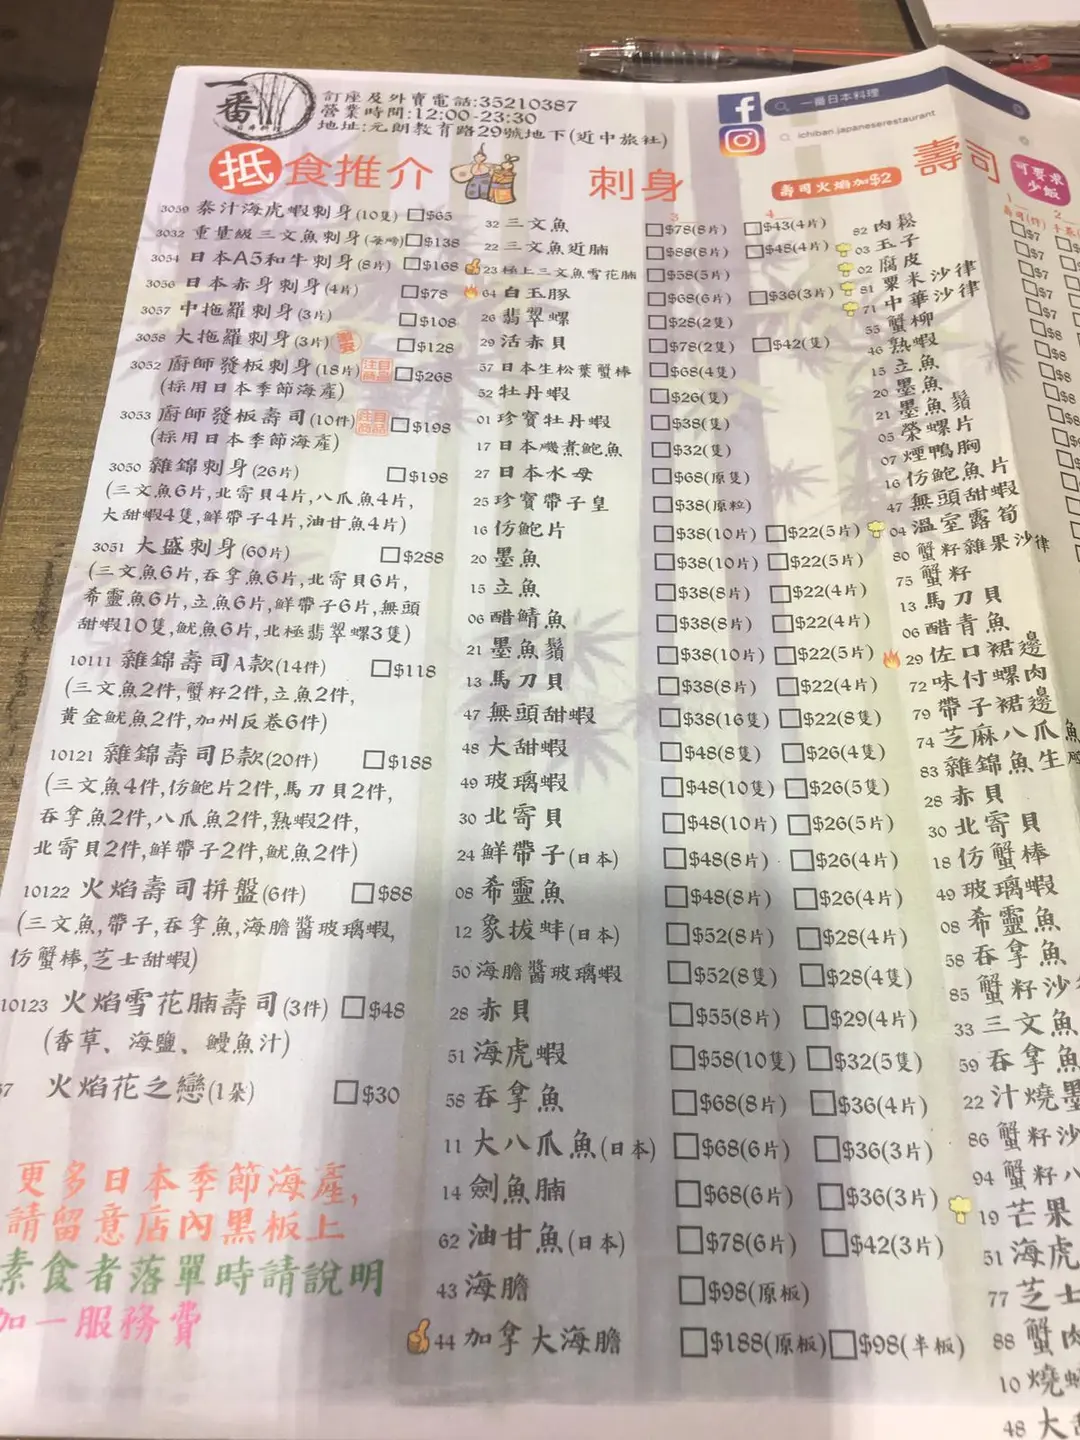 一番
日本料理
訂座及外賣電話:35210387
營業時間:12:00-23:30
地址:元朗教育路29號地下(近中旅社)
一番日本料理
ichiban.japaneserestaurant
抵食推介
3059 泰汁海虎蝦刺身(10隻) $65
3032 重量級三文魚刺身(每磅) $138
3054 日本A5和牛刺身(8片) $168
3056 日本赤身刺身(4片) $78
3057 中拖羅刺身(3片) $108
3058 大拖羅刺身(3片) $128
3052 廚師發板刺身(18片) 注目商品 $268
(採用日本季節海產)
3053 廚師發板壽司(10件) 注目商品 $198
(採用日本季節海產)
3050 雜錦刺身(26片) $198
(三文魚6片,北寄貝4片,八爪魚4片,
大甜蝦4隻,鮮帶子4片,油甘魚4片)
3051 大盛刺身(60片) $288
(三文魚6片,吞拿魚6片,北寄貝6片,
希靈魚6片,立魚6片,鮮帶子6片,無頭
甜蝦10隻,魷魚6片,北極翡翠螺3隻)
10111 雜錦壽司A款(14件) $118
(三文魚2件,蟹籽2件,立魚2件,
黃金魷魚2件,加州反卷6件)
10121 雜錦壽司B款(20件) $188
(三文魚4件,仿鮑片2件,馬刀貝2件,
吞拿魚2件,八爪魚2件,熟蝦2件,
北寄貝2件,鮮帶子2件,魷魚2件)
10122 火焰壽司拼盤(6件) $88
(三文魚,帶子,吞拿魚,海膽醬玻璃蝦,
仿蟹棒,芝士甜蝦)
10123 火焰雪花腩壽司(3件) $48
(香草、海鹽、鰻魚汁)
火焰花之戀(1朵) $30
更多日本季節海產,
請留意店內黑板上
素食者落單時請說明
加一服務費
刺身
3 4
32 三文魚 $78(8片) $43(4片)
22 三文魚近腩 $88(8片) $48(4片)
23 極上三文魚雪花腩 $58(5片)
64 白玉豚 $68(6片) $36(3片)
26 翡翠螺 $28(2隻)
29 活赤貝 $78(2隻) $42(隻)
57 日本生松葉蟹棒 $68(4隻)
52 牡丹蝦 $26(隻)
01 珍寶牡丹蝦 $38(隻)
17 日本磯煮鮑魚 $32(隻)
27 日本水母 $68(原隻)
25 珍寶帶子皇 $38(原粒)
16 仿鮑片 $38(10片) $22(5片)
20 墨魚 $38(10片) $22(5片)
15 立魚 $38(8片) $22(4片)
06 醋鯖魚 $38(8片) $22(4片)
21 墨魚鬚 $38(10片) $22(5片)
13 馬刀貝 $38(8片) $22(4片)
47 無頭甜蝦 $38(16隻) $22(8隻)
48 大甜蝦 $48(8隻) $26(4隻)
49 玻璃蝦 $48(10隻) $26(5隻)
30 北寄貝 $48(10片) $26(5片)
24 鮮帶子(日本) $48(8片) $26(4片)
08 希靈魚 $48(8片) $26(4片)
12 象拔蚌(日本) $52(8片) $28(4片)
50 海膽醬玻璃蝦 $52(8隻) $28(4隻)
28 赤貝 $55(8片) $29(4片)
51 海虎蝦 $58(10隻) $32(5隻)
58 吞拿魚 $68(8片) $36(4片)
11 大八爪魚(日本) $68(6片) $36(3片)
14 劍魚腩 $68(6片) $36(3片)
62 油甘魚(日本) $78(6片) $42(3片)
43 海膽 $98(原板)
44 加拿大海膽 $188(原板) $98(半板)
壽司
壽司火焰加$2
可要求少飯
1 2
壽司(件)
82 肉鬆 $7
03 玉子 $7
02 腐皮 $7
81 粟米沙律 $7
71 中華沙律
55 蟹柳
46 熟蝦
15 立魚
20 墨魚
21 墨魚鬚
05 榮螺片
07 煙鴨胸
16 仿鮑魚片
47 無頭甜蝦
04 溫室露筍
80 蟹籽雜果沙律
75 蟹籽
13 馬刀貝
06 醋青魚
29 佐口裙邊
72 味付螺肉
79 帶子裙邊
74 芝麻八爪魚
83 雜錦魚生
28 赤貝
30 北寄貝
18 仿蟹棒
49 玻璃蝦
08 希靈魚
58 吞拿魚
85 蟹籽沙
33 三文魚
59 吞拿魚
22 汁燒墨
86 蟹籽沙
94 蟹籽八
19 芒果
51 海虎
77 芝士
88 蟹肉
10 燒
48 大